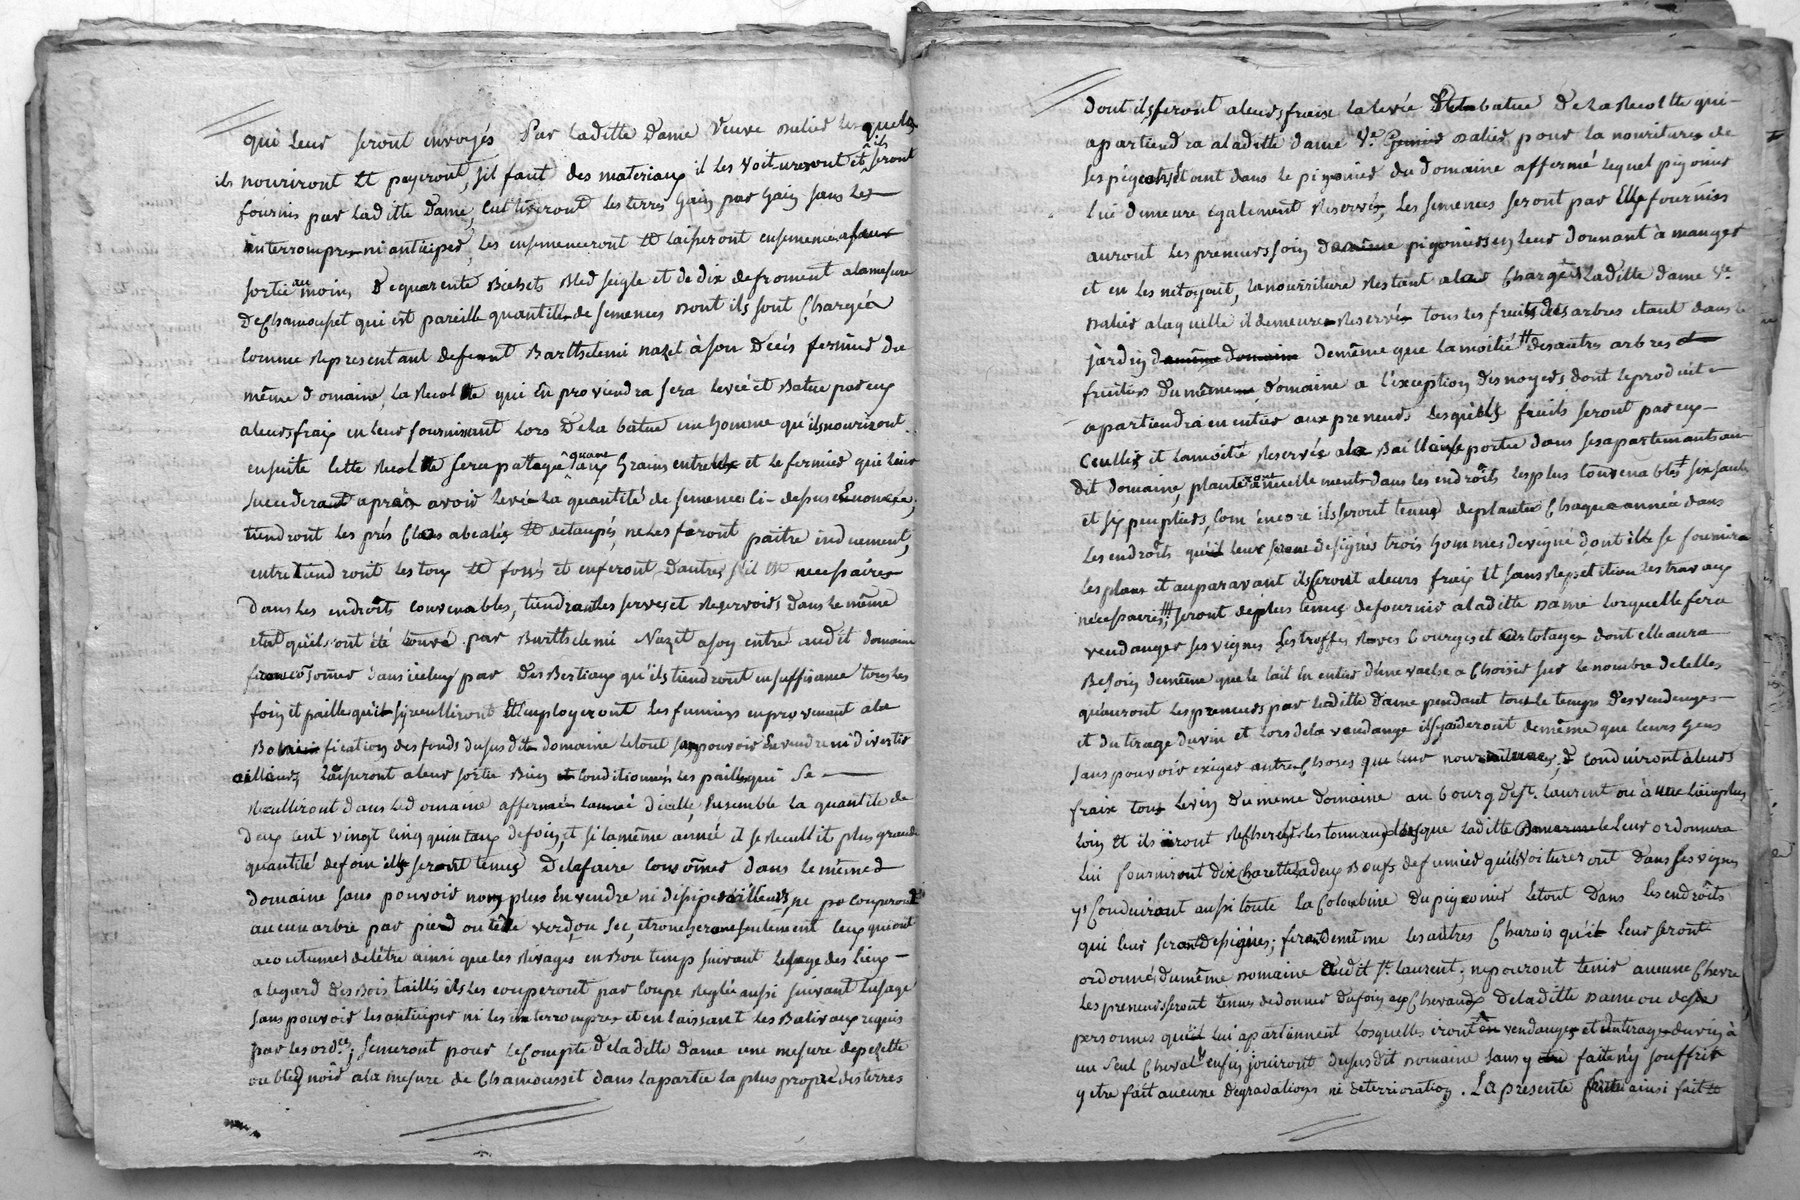 qui leur seront envoyés Par laditte Dame veuve nalier lesquels
ils nouriront et payeront, s'il faut des materiaux il les voitureront et ils seront
fournis par laditte Dame, cultiveront les terres Gain par Gain sans les
interrompre ni anticiper, les ensemenceront et laisseront ensemencé a leur
sortie au moins De quarente Bichets Bled seigle et de dix de froment a la mesure
De Chamousset qui est pareille quantité de semences dont ils sont Chargéà
Comme Representant defunt Barthelemi nazet à son Décés fermier du
même domaine, la Recolte qui En proviendra sera levée et Batue par eux
a leurs fraix en leur fournissant lors De la batue un homme qu'ils nouriront
ensuite cette Recolte sera patagé quant aux Grains entre eux et le fermier qui leur
succedera apréà avoir levé la quantité de semence ci-dessus Enoncée;
tiendront les prés Clos abealés et detaupés, ne les feront paitre induement,
entretiendront les et fossés et en feront D'autres s'il est necessaires
dans les endroits convenables, tiendront les serves et Reservoirs dans le même
etat qu'ils ont été trouvé par Barthelemi Nazet a son entré audit domaine
feront consomer dans icelui par Des Bestiaux qu'ils tiendront en suffisance tous les
foin et paille qu'il s'y recueilliront et Employeront les fumiers en provenant a la
Bonification des fonds du susdit domaine le tout sans pouvoir En vendre ni divertir
ailleurs, laisseront a leur sortie Bien et Conditionnés les pailles qui se
Recueilliront dans le Domaine affermé l'anné d'icelle, Ensemble la quantité de
deux cent vingt cinq quintaux de foin, et si la même année il se Recueillit plus grande
quantité de foin ils seront tenus De la faire consomer dans le même
domaine sans pouvoir non plus En vendre ni dissiper ailleurs, ne couperont
aucun arbre par pied ou tête verd ou sec, etroncheront seulement ceux qui ont
acoutumés de l'être ainsi que les Rivages en Bon temps suivant l'usage des Lieux
a l'egard Des Bois taillis ils les couperont par Coupe Reglée aussi suivant l'usage
sans pouvoir les anticiper ni les interrompre et en laissant les Balivaux requis
par les ordces; semeront pour le Compte De laditte Dame une mesure de pezette
ou bled noir a la mesure de Chamousset dans la partie la plus propre des terres
dont ils feront a leurs fraix la levée Et la batue De la Recoltte qui
apartiendra a laditte dame Ve. nalier pour la nouriture de
ses pigeons Etant dans le pigonier du domaine affermé lequel pigonier
lui demeure egalement Reservé, les semences seront par Elle fournies
auront les preneurs soin pigoniers en leur donnant à manger
et en les netoyant, la nourriture Restant a la Charge de laditte dame Ve
nalier a laquelle il demeure Reservé tous les fruits des arbres etant dans le
jardin demême domaine demême que la moitié # des autres arbres
fruitiers Du même domaine a l'exception des noyers dont le produit
apartiendra en entier aux preneurs lesquels fruits seront par eux
Ceuillis et la moitié Reservée a la Baillause portée dans ses apartemants au
dit domaine, planteront annuellement dans les endroits les plus convenables six saules
et six peupliers, com' encore ils seront tenus de planter Chaque année dans
les endroits qu'il leur seront designés trois hommes de vigne dont ils se fournira
les plans et auparavant ils feront a leurs fraix et sans Repetition les travaux
necessaires # seront deplus tenus de fournir a laditte Dame lorqu'elle fera
vendanger ses vignes les troffes Raves Courges et autres jotages dont elle aura
Besoin demême que le lait En entier d'une vache a Choisir sur le nombre de celles
qu'auront les preneurs par laditte dame pendant tout le temps Des vendenges
et du tirage du vin et lors de la vendange ils y aideront demême que leurs gens
sans pouvoir exiger autre Choses que leur nourriture, conduiront à leurs
fraix tous le vin Du même domaine au bourg de st. laurent ou à une lieue plus
loin et ils iront Rechercher les tonnaux lorsque laditte Dame le leur ordonnera
lui fourniront dix Charettes a deux Boeufs de fumier qu'ils voitureront dans ses vignes
y Conduiront aussi toute la Colombine Du pigonier le tout Dans les endroits
qui leur seront designés; feront demême les autres Charois qu'il leur seront
ordonné, du même domaine audit st. laurent. ne pouront tenir aucune Chevre
les preneurs seront tenus de donner du foin aux Chevaux De laditte Dame ou de ses
personnes qu'il lui apartiennent losquelles iront en vendanges et au tirage du vin à
un seul Cheval enfin jouiront du susdit domaine sans y faire n'y souffrir
y etre fait aucune degradations ni deterrioration. La presente ainsi fait